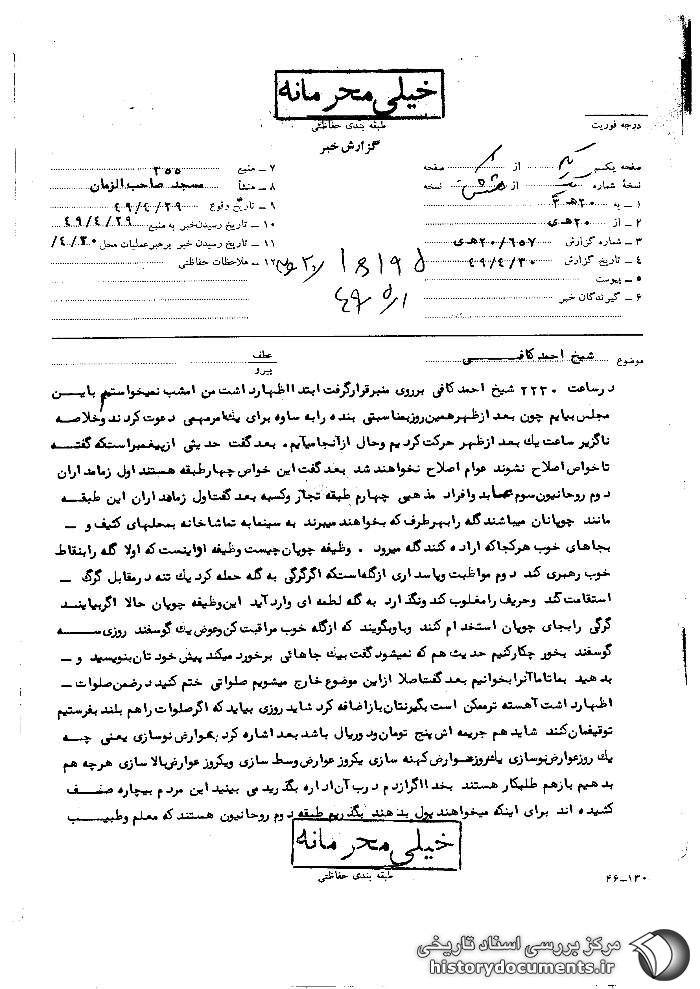 خیلی محرمانه
طبقه بندی حفاظتی
درجه فوریت
گزارش خبر
صفحه یکم از صفحه
نسخهٔ شماره از شش نسخه
۱ ـ به ۲۰هـ ۳
۲ ـ از ۲۰هـ ی
۳ ـ شماره گزارش ۲۰/۶۵۷هـ ی
۴ ـ تاریخ گزارش ۴۹/۴/۳۰
۵ ـ پیوست
۶ ـ گیرندگان خبر
۷ ـ منبع ۳۵۵
۸ ـ منشأ مسجد صاحب الزمان
۹ ـ تاریخ وقوع ۴۹/۴/۲۹
۱۰ ـ تاریخ رسیدن خبر به منبع ۴۹/۴/۲۹
۱۱ ـ تاریخ رسیدن خبر برهبر عملیات محل ۴/۳۰/
۱۲ ـ ملاحظات حفاظتی
موضوع شیخ احمد کافی
عطف
پیرو
در ساعت ۲۲۳۰ شیخ احمد کافی بر روی منبر قرار گرفت ابتدا اظهار داشت من امشب نمیخواستم باین
مجلس بیایم چون بعد از ظهر همین روز بمناسبتی بنده را به ساوه برای یك امر مهمی دعوت کردند و خلاصه
ناگزیر ساعت یك بعد از ظهر حرکت کردیم و حال از آنجا میآیم . بعد گفت حدیثی از پیغمبر است که گفتـه
تا خواص اصلاح نشوند عوام اصلاح نخواهند شد بعد گفت این خواص چهار طبقه هستند اول زمامداران
دوم روحانیون سوم عباد و افراد مذهبی چهارم طبقه تجار و کسبه بعد گفت اول زمامداران این طبقـه
مانند چوپانان میباشند گله را بهر طرف که بخواهند میبرند به سینما به تماشاخانه بمحلهای کثیف و ـ
بجاهای خوب هر کجا که اراده کنند گله میرود . وظیفه چوپان چیست وظیفه او اینست که اولا گله را بنقاط
خوب رهبری کند دوم مواظبت و پاسداری از گله است که اگر گرگی به گله حمله کرد یك تنه در مقابل گرگ ـ
استقامت کند و حریف را مغلوب کند و نگذارد به گله لطمه ای وارد آید این وظیفه چوپان حالا اگر بیاینـد
گرگی را بجای چوپان استخدام کنند و باو بگویند که از گله خوب مراقبت کن و عوض یك گوسفند روزی سـه
گوسفند بخور چکار کنیم حدیث هم که نمیشود گفت بیك جاهائی برخورد میکند پیش خودتان بنویسید و ـ
بدهید بما تا ما آنرا بخوانیم بعد گفت اصلا از این موضوع خارج میشویم صلواتی ختم کنید در ضمن صلوات ـ
اظهار داشت آهسته تر ممکن است بگیرنتان باز اضافه کرد شاید روزی بیاید که اگر صلوات را هم بلند بفرستیم
توقیفمان کنند شاید هم جریمه اش پنج تومان و دو ریال باشد بعد اشاره کرد بعوارض نوسازی یعنی چـه
یك روز عوارض نوسازی یك روز عوارض کهنه سازی یکروز عوارض وسط سازی و یکروز عوارض بالا سازی هر چه هم
بدهیم باز هم طلبکار هستند بخدا اگر از دم درب آن اداره بگذرید می بینید این مردم بیچاره صـف
کشیده اند برای اینکه میخواهند پول بدهند بگذریم طبقه دوم روحانیون هستند که معلم و طبیـب
خیلی محرمانه
طبقه بندی حفاظتی
۴۶-۱۳۰
مرکز بررسی اسناد تاریخی
historydocuments.ir